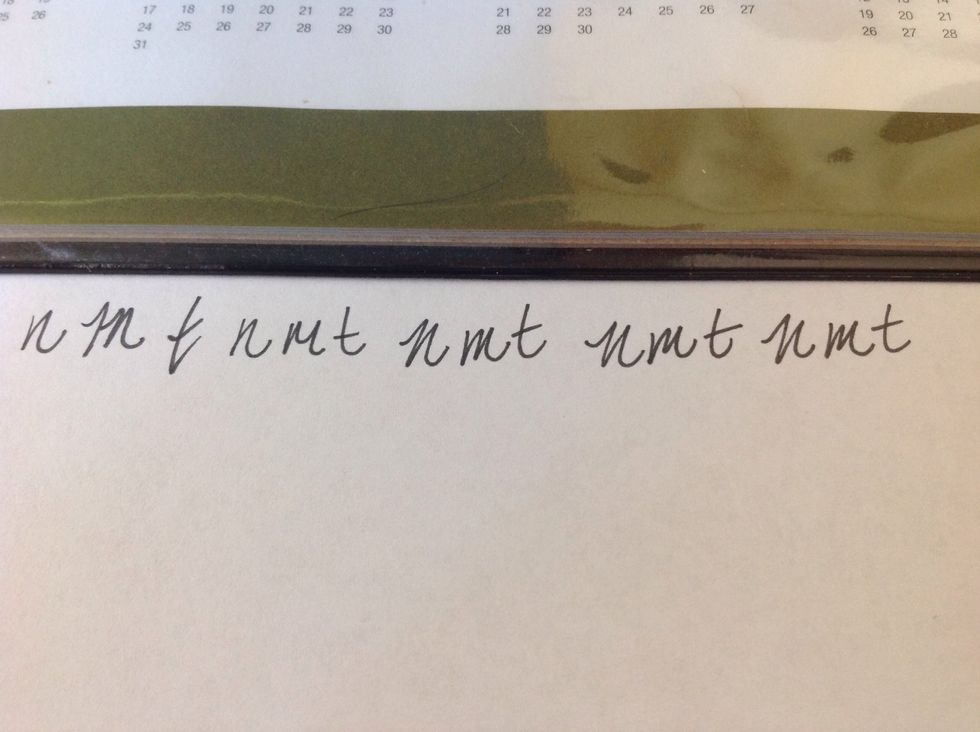 25 26 17 18 19 20 21 22 23 21 22 23 24 25 26 27 19 20 21
24 25 26 27 28 29 30 28 29 30 26 27 28
31
n m t n m t n m t n m t n m t